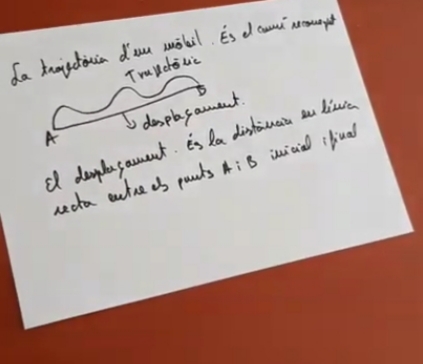 La trajectòria d'un mòbil. És el camí recorregut
Trajectòria
A
B
desplaçament.
El desplaçament. És la distància en línia
recta entre els punts A i B inicial i final